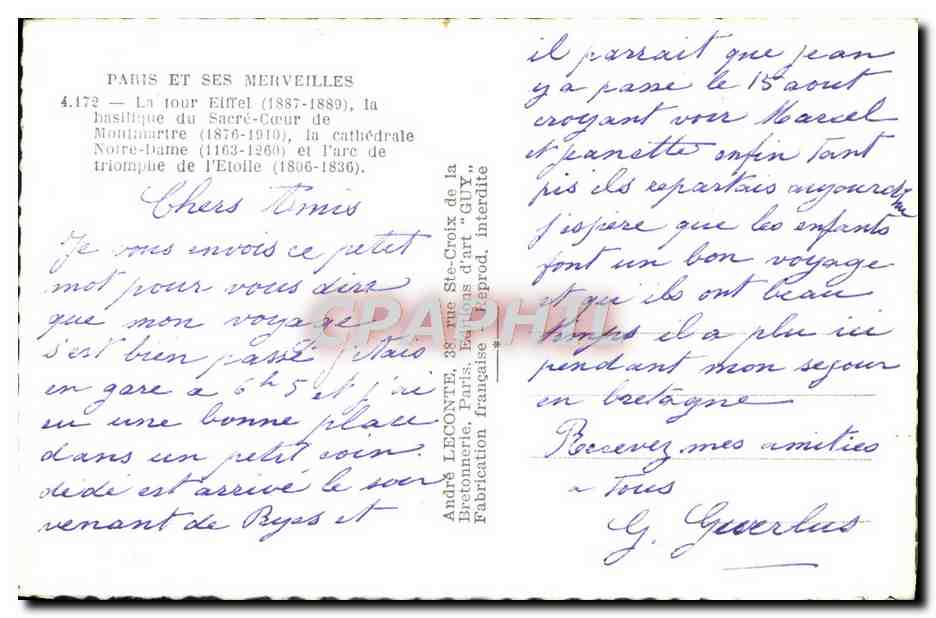 PARIS ET SES MERVEILLES
4.172 — La tour Eiffel (1887-1889), la
basilique du Sacré-Cœur de
Montmartre (1876-1910), la cathédrale
Notre-Dame (1163-1260) et l'arc de
triomphe de l'Etoile (1806-1836).
Chers Amis
Je vous envois ce petit
mot pour vous dire
que mon voyage
s'est bien passé j'etais
en gare a 6h 5 et j'ai
eu une bonne place
dans un petit coin.
dédé est arrivé le soir
venant de et
André LECONTE, 38, rue Ste-Croix de la
Bretonnerie, Paris. Editions d'art "GUY"
Fabrication française Reprod. interdite
CPAPHIL
il parrait que jean
y a passé le 15 aout
croyant voir Marcel
et jeanette enfin tant
pis ils repartais aujourd'hui
j'espère que les enfants
font un bon voyage
et qu'ils ont beau
temps il a plu ici
pendant mon sejour
en bretagne
Recevez mes amities
a tous
G.